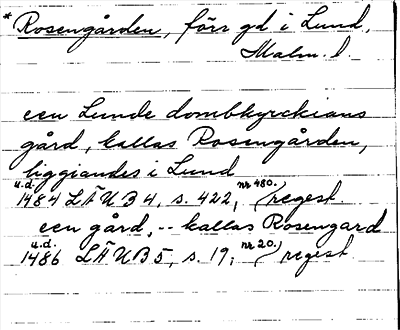 * Rosengården, förr gd i Lund,
Malm. l.
een Lunde dombkyrckians
gård, kallas Rosengården,
liggiandes i Lund
u.d. 1484 LÄUB 4, s. 422, nr 480. regest.
een gård, -- kallas Rosengard
u.d. 1486 LÄUB 5, s. 19, nr 20. regest